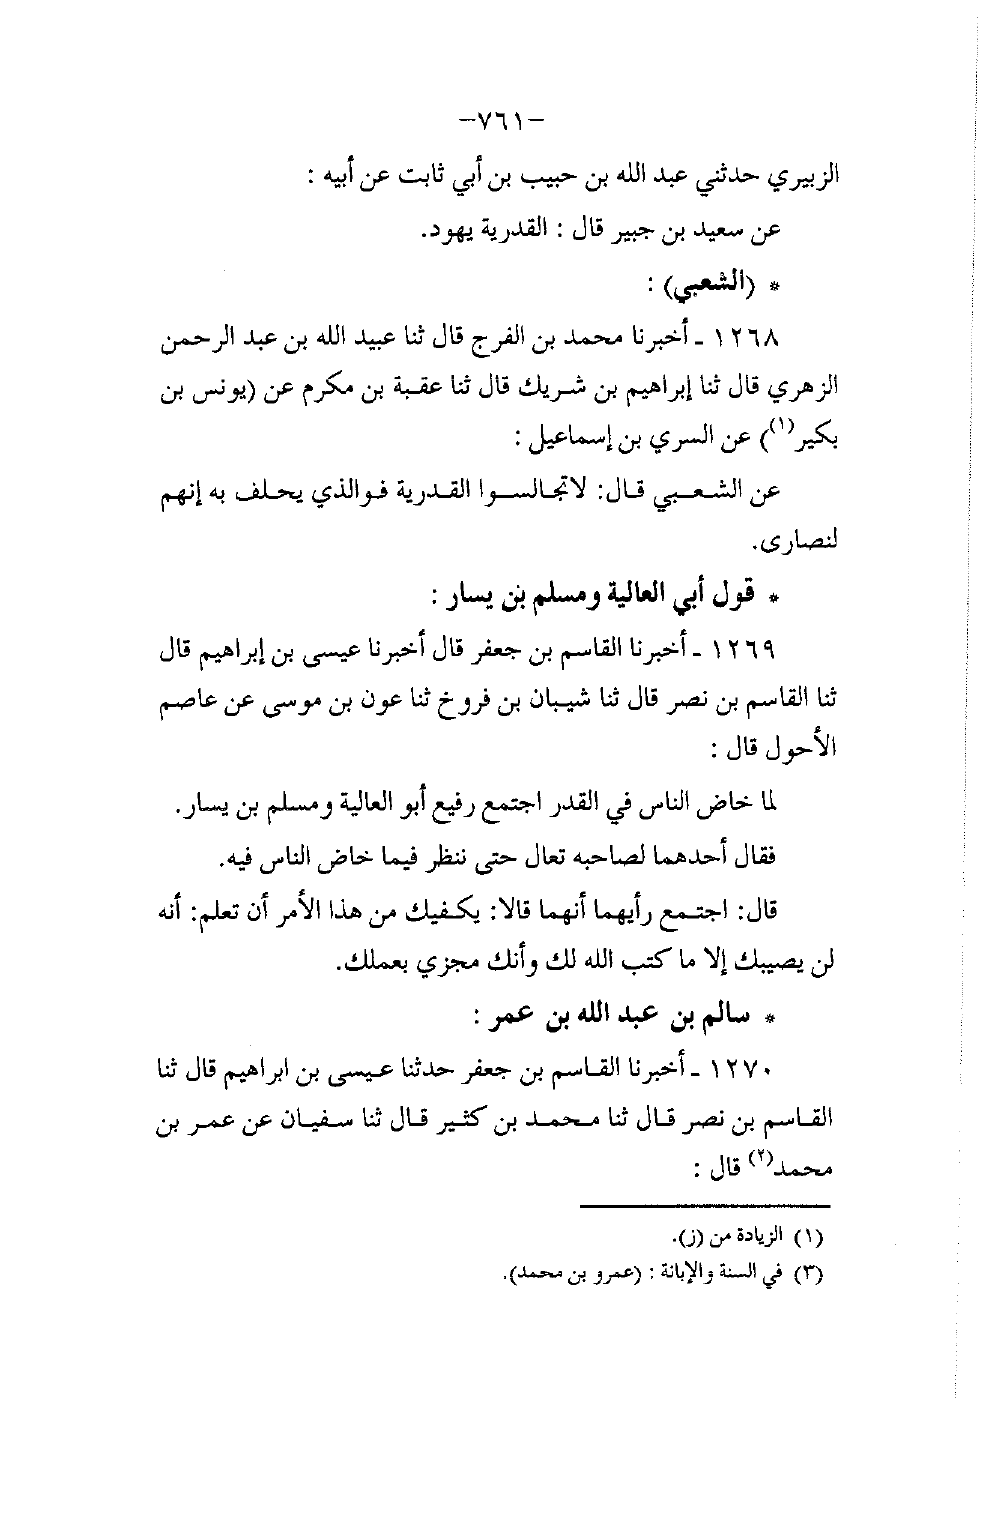 -٧٦١-
الزبيري حدثني عبد الله بن حبيب بن أبي ثابت عن أبيه :
عن سعيد بن جبير قال : القدرية يهود.
* (الشعبي) :
١٢٦٨ ـ أخبرنا محمد بن الفرج قال ثنا عبيد الله بن عبد الرحمن
الزهري قال ثنا إبراهيم بن شريك قال ثنا عقبة بن مكرم عن (يونس بن
بكير(١)) عن السري بن إسماعيل :
عن الشعبي قال: لاتجالسوا القدرية فوالذي يحلف به إنهم
لنصارى.
* قول أبي العالية ومسلم بن يسار :
١٢٦٩ ـ أخبرنا القاسم بن جعفر قال أخبرنا عيسى بن إبراهيم قال
ثنا القاسم بن نصر قال ثنا شيبان بن فروخ ثنا عون بن موسى عن عاصم
الأحول قال :
لما خاض الناس في القدر اجتمع رفيع أبو العالية ومسلم بن يسار.
فقال أحدهما لصاحبه تعال حتى ننظر فيما خاض الناس فيه.
قال: اجتمع رأيهما أنهما قالا: يكفيك من هذا الأمر أن تعلم: أنه
لن يصيبك إلا ما كتب الله لك وأنك مجزي بعملك.
* سالم بن عبد الله بن عمر :
١٢٧٠ ـ أخبرنا القاسم بن جعفر حدثنا عيسى بن ابراهيم قال ثنا
القاسم بن نصر قال ثنا محمد بن كثير قال ثنا سفيان عن عمر بن
محمد(٢) قال :
(١) الزيادة من (ز).
(٣) في السنة والإبانة : (عمرو بن محمد).